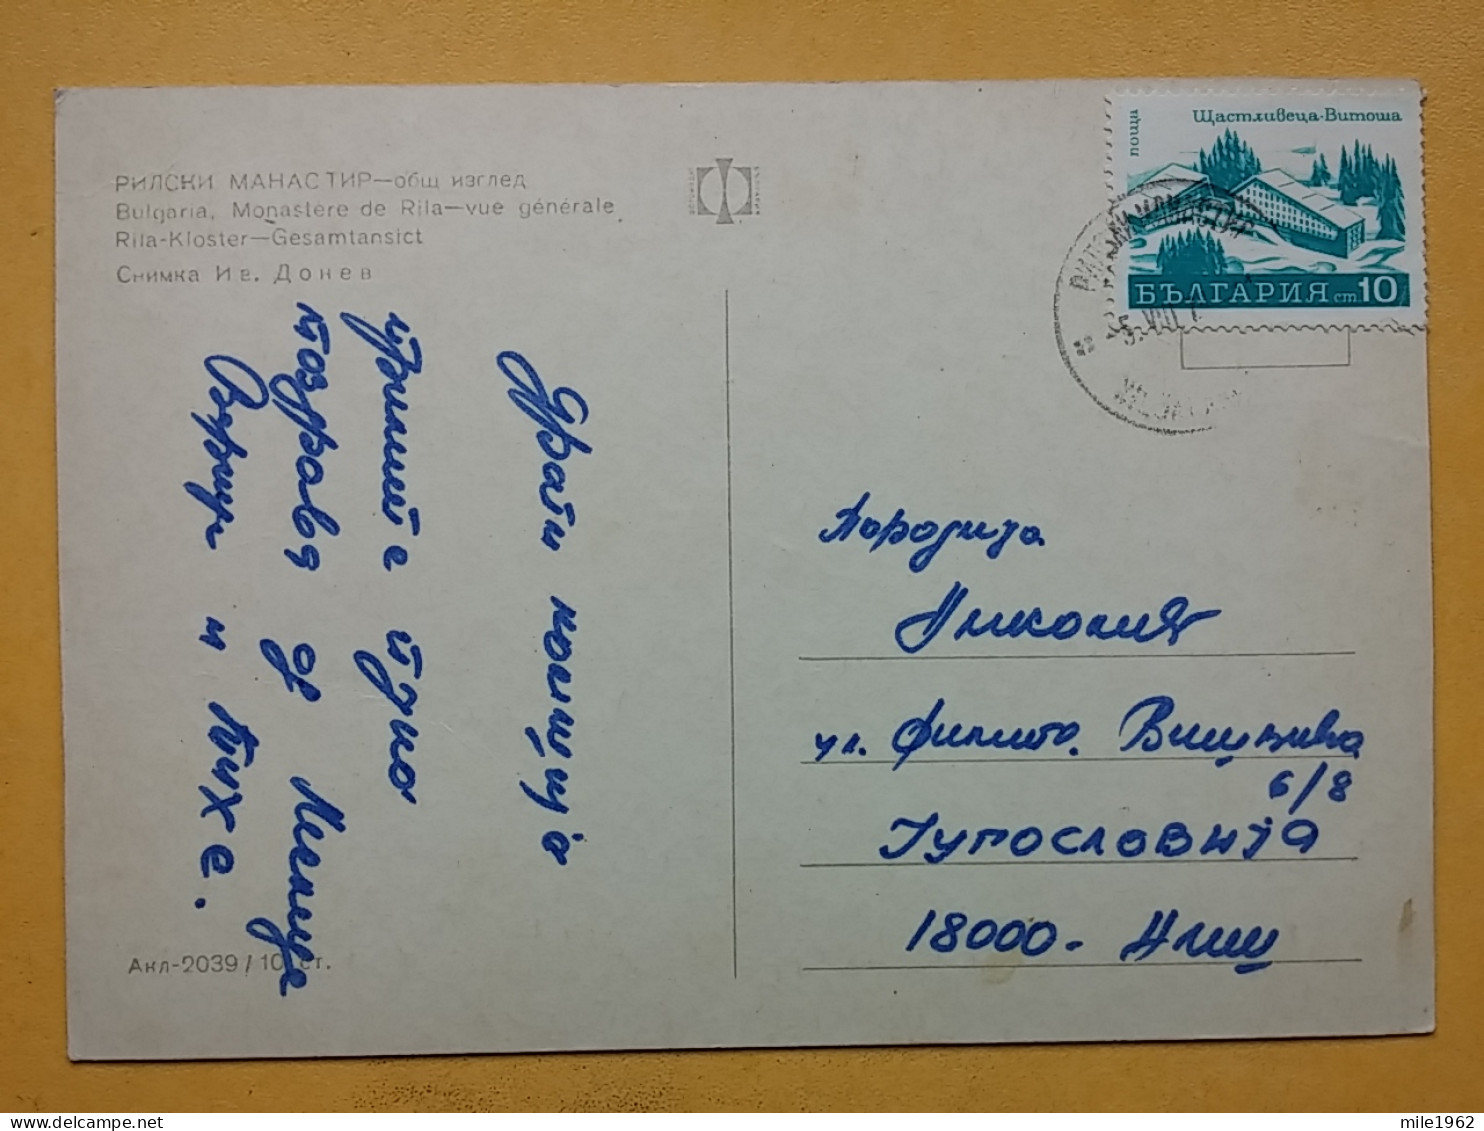 РИЛСКИ МАНАСТИР—общ изглед
Bulgaria, Monastère de Rila—vue générale
Rila-Kloster—Gesamtansict
Снимка Ив. Донев
пощи
Щастливеца-Витоша
БЪЛГАРИЯ ст 10
РИЛСКИ МАНАСТИР
5. VIII 7
Драги комшије
примите једно
поздрав од
и
Породица
Николић
ул. Филипа Вишњића
6/8
Југославија
18000 - Ниш
Акл-2039/10 ст.
mile1962